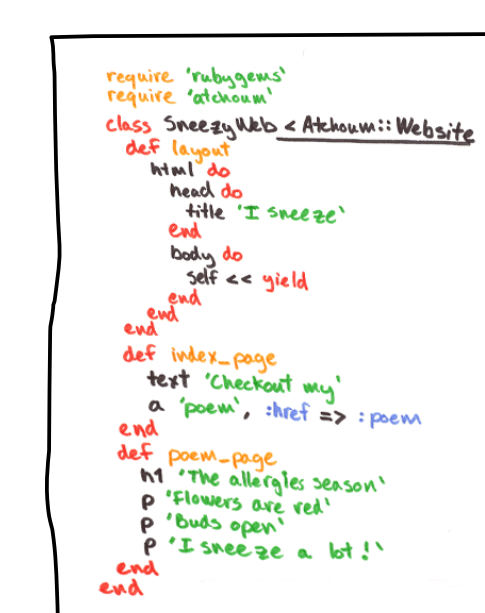 require 'rubygems'
require 'atchoum'
class SneezyWeb < Atchoum::Website
def layout
html do
head do
title 'I sneeze'
end
body do
self << yield
end
end
end
def index_page
text 'Checkout my'
a 'poem', :href => :poem
end
def poem_page
h1 'The allergies season'
p 'Flowers are red'
p 'Buds open'
p 'I sneeze a lot!'
end
end